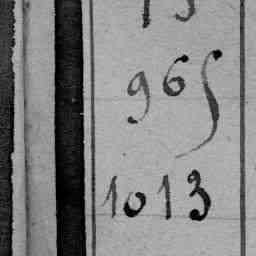 965
1013